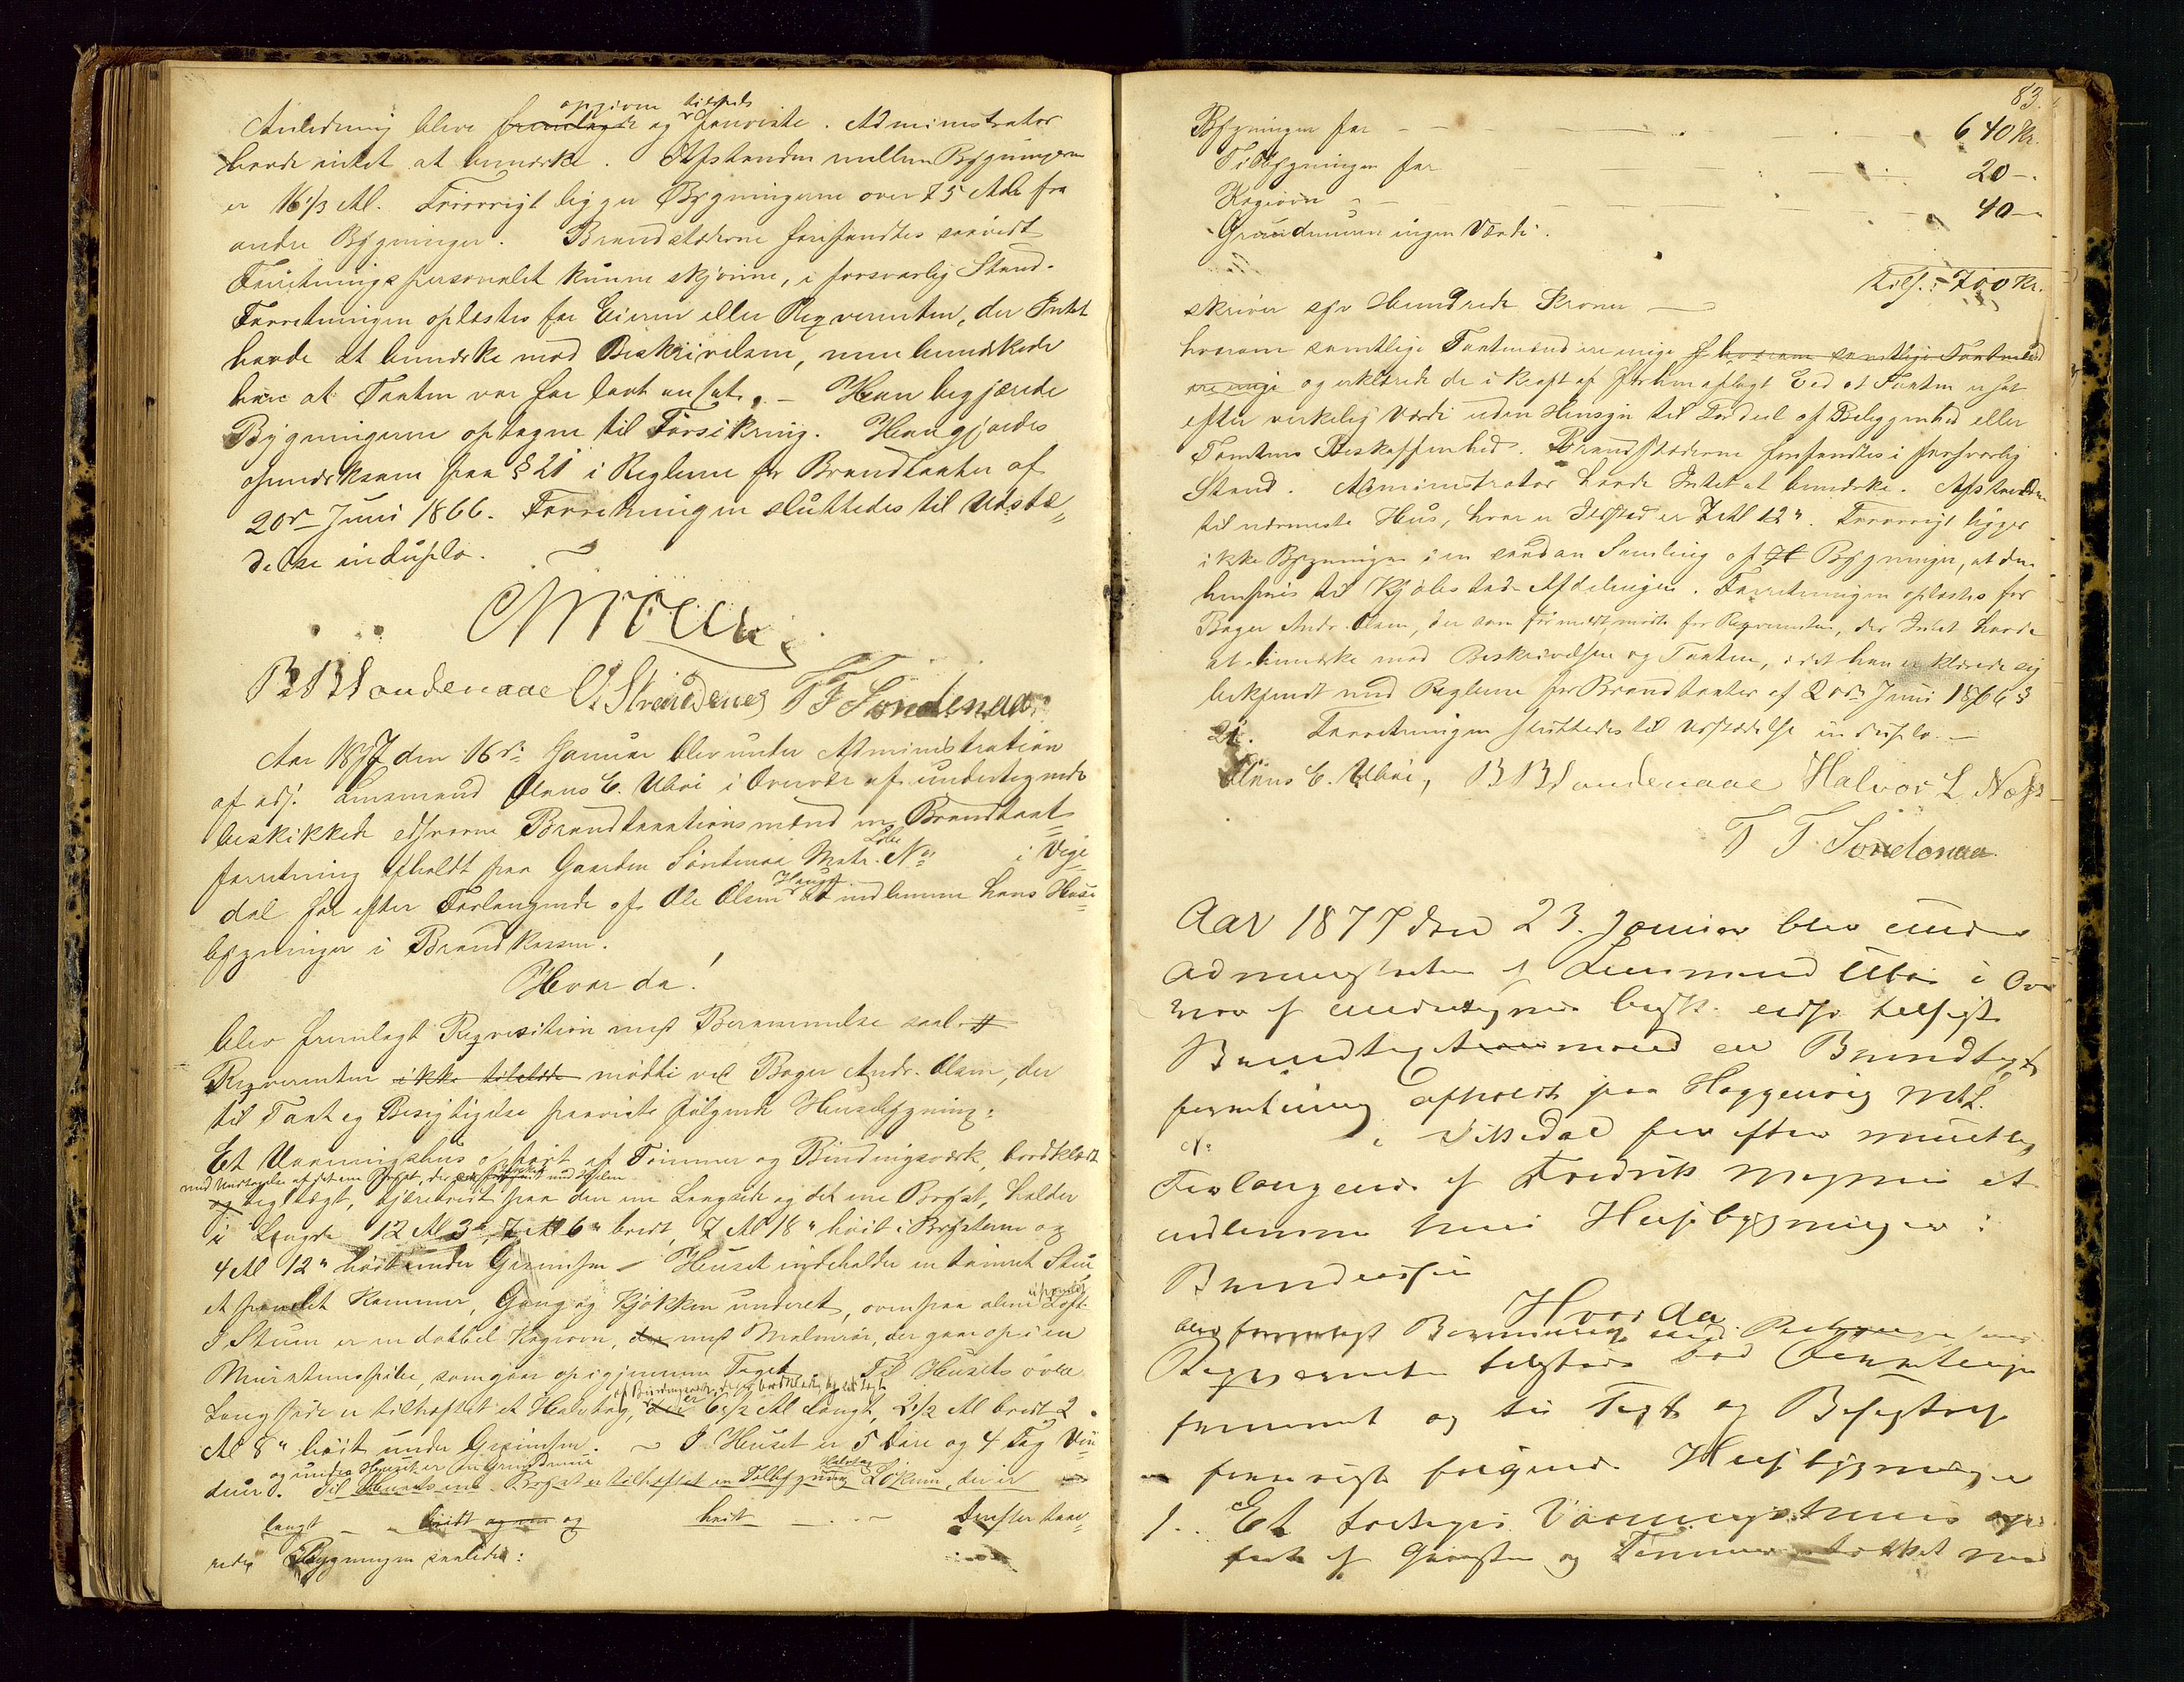 Anledning bleve opgivne tilstede og paaviste. Administrator
havde intet at bemærke. Afstanden mellem Bygningerne
er 16 1/3 Al. Forøvrigt ligger Bygningerne over 75 Al. fra
andre Bygninger. Brandstederne forefandtes saavidt
Forretningspersonalet kunne skjønne, i forsvarlig Stand.
Forretningen oplæstes for Eieren eller Reqvirenten, der Intet
havde at bemærke mod Beskrivelsen, men bemærkede
kun at Taxten var for lavt ansat. – Han begjærede
Bygningerne optagne til Forsikring. Han gjordes
opmærksom paa § 21 i Reglerne for Brandtaxter af
20de Juni 1866. Forretningen sluttedes til Udstæ„
delse in duplo.
B B Sondenaae O. Strandenes T T Søndenaa
Aar 1877 den 16de Januar blev under Administration
af adj. Lensmand Olaus E. Ubøe i Overvær af undertegnede
beskikkede edsvorne Brandtaxationsmænd en Brandtaxt
forretning afholdt paa Gaarden Søndenaa Matr. Løbe No i Vige
dal for efter Forlangende af Ole Olsen Haugen at indlemme hans Huse
bygninger i Brandkassen.
Hvor da!
blev fremlagt Reqvisition med Berammelse saal. #
Reqvirenten ikke tilstede mødte ved Bager Andr. Olsen, der
til Taxt og Besigtigelse paaviste følgende Husebygning:
Et Vaaningshus opført af Tømmer og Bindingsværk, bordklædt
med Undtagelse af det ene Brøst, der
og teglægt, kjærebredt paa den ene Langside og det ene Brøst, holder
i Længde 12 Al 3", 7 Al 6" bredt, 7 Al 18" høit i Brøsterne og
4 Al 12" høit under Gesimsen – Huset indeholder en tømret Stue
et panelet Kammer, Gang og Kjøkken underet, ovenpaa alene Loft.
I Stuen er en dobbel Kogeovn, der med Malmrør, der gaar op i en
Murstenspibe, som gaar op igjennem Taget. Til Husets øvre
af Bindingsværk, der er bordklædt og tegltagt
Langside er tilhæftet et Halvtag, der er 6 1/2 Al langt, 2 1/2 Al bredt og 2
Al 8" høit under Gesimsen. – I Huset er 5 Døre og 4 Fag Vin
og under Huset er en Grundmuur
duer. Til Husets ene Brøst er tilhæftet en Tilbygning Halvtag Lokum, der er
langt – bredt og en og høit – Derefter taxe„
redes Bygningen saaledes:
83.
Bygningen for 640 Kr.
Tilbygningen for 20 –.
Kogeovn 40 –
Grundmuren ingen Værdi.
Tils. 700 Kr.
skriver syv Hundrede Kroner –
hvorom samtlige Taxtmænd ere enige hvorom samtlige Taxtmænd
ere enige og erklærede de i Kraft af forhen aflagt Ed at Taxten er sat
efter virkelig Værdi uden Hensyn til Fordeel af Beliggenhed eller
Tomtens Beskaffenhed. Brandstederne forefandtes i forsvarlig
Stand. Administrator havde Intet at bemærke. Afstanden
til nærmeste Hus, hvor er Ildsted er 7 Al 12". Forøvrigt ligger
ikke Bygningen i en saadan Samling af H Bygninger, at den
henføres til Kjøbstad-Afdelingen. Forretningen oplæstes for
Bager Andr. Olsen, der som før meldt mødte for Reqvirenten, der Intet havde
at bemærke mod Beskrivelsen og Taxten, idet han erklærede sig
bekjendt med Reglerne for Brandtaxter af 20de Juni 1866 §
21. Forretningen sluttedes til Udstædelse in duplo. –
Olaus E. Ubøe, B B Sondenaae Halvor L Næss
T T Søndenaa.
Aar 1877 den 23. Januar blev under
Administration af Lensmand Ubøe i Over
vær af undertegnede besk. edsv.
Brandtaxtmænd en Brandtaxt
forretning afholdt paa Haggenvig Mtl.
No i Vikedal for efter mundtlig
Forlangende af Fredrik Magnus at
indlemme hans Husebygninger i
Brandkassen
Hvor da
blev fremlagt Berammelse
Reqvirenten tilstede ved Forretningen
fremmet og til Taxt og Besigtigelse
paaviste følgende Husebygninger
1. Et toetages Vaaningshuus op
ført af Graasten og Tømmer tækket med